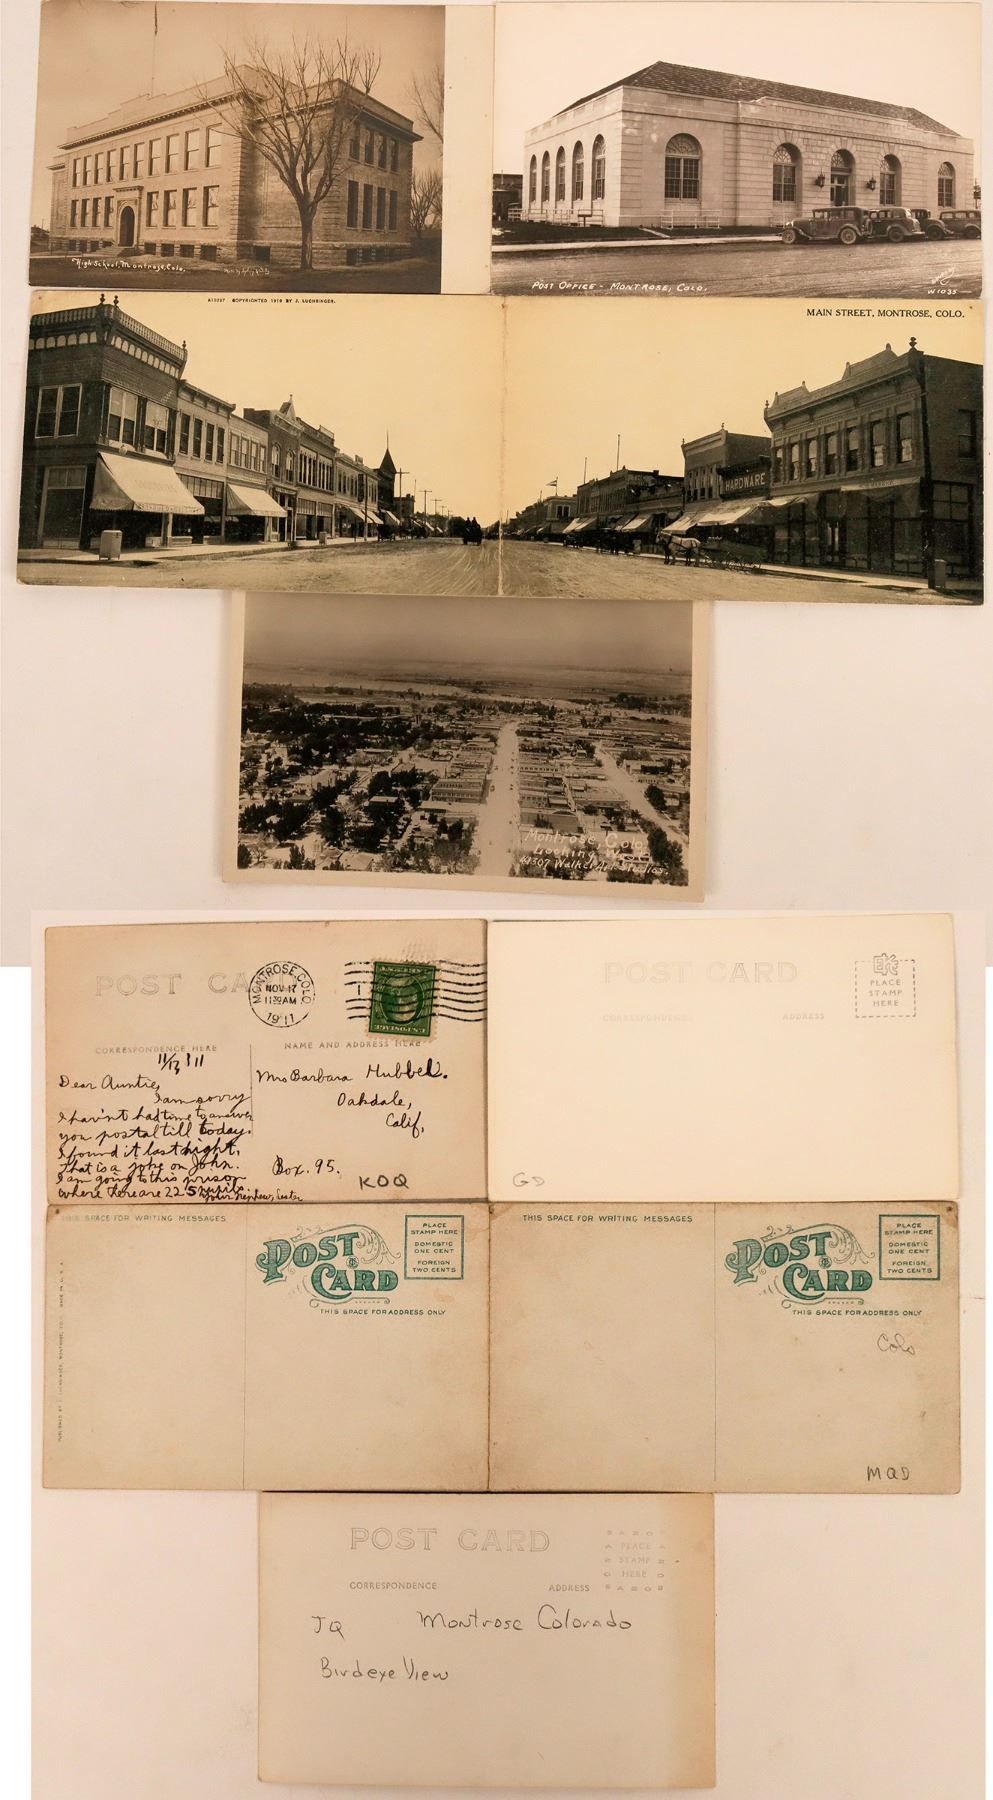 High School, Montrose, Colo.
POST OFFICE - MONTROSE, COLO.
W1035
A13237 COPYRIGHTED 1910 BY J. LUCHSINGER.
MAIN STREET, MONTROSE, COLO.
HARDWARE
Montrose, Colo.
Looking West
Walker Art Studios.
POST CARD
MONTROSE, COLO.
NOV 17
11 30 AM
1911
1
U.S. POSTAGE
CORRESPONDENCE HERE
NAME AND ADDRESS HERE
11/13 11
Dear Auntie,
I am sorry
I hav'nt had time to answer
you postal till today.
I found it last night.
That is a joke on John.
I am going to this prison
where there are 225 pupils.
your nephew, Lester
Mrs Barbara Hubbell.
Oakdale,
Calif,
Box. 95.
KOQ
POST CARD
CORRESPONDENCE
ADDRESS
EKC
PLACE
STAMP
HERE
GD
THIS SPACE FOR WRITING MESSAGES
POST CARD
PLACE
STAMP HERE
DOMESTIC
ONE CENT
FOREIGN
TWO CENTS
THIS SPACE FOR ADDRESS ONLY
PUBLISHED BY J. LUCHSINGER, MONTROSE, COLO. MADE IN U.S.A.
THIS SPACE FOR WRITING MESSAGES
POST CARD
PLACE
STAMP HERE
DOMESTIC
ONE CENT
FOREIGN
TWO CENTS
THIS SPACE FOR ADDRESS ONLY
Colo
MQD
POST CARD
PLACE
STAMP
HERE
CORRESPONDENCE
ADDRESS
JQ
Montrose Colorado
Birdeye View